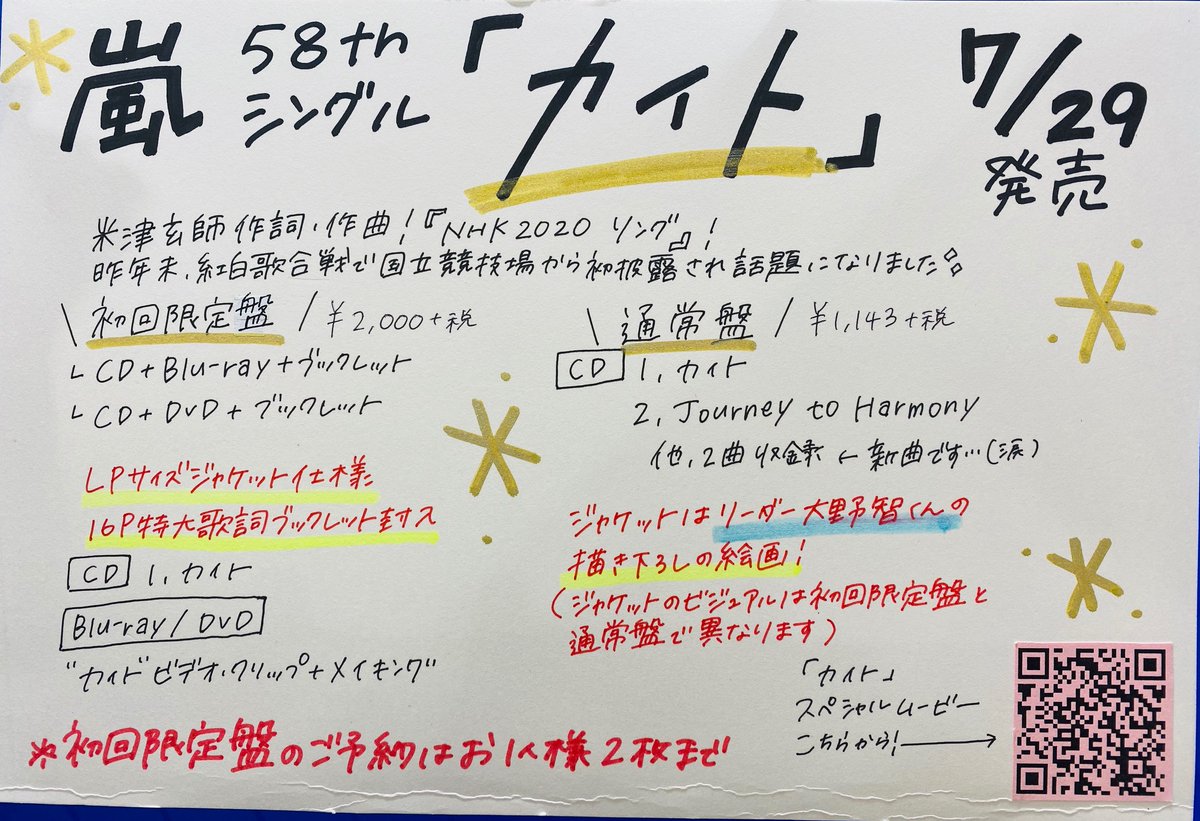 嵐 58th シングル 「カイト」 7/29 発売
米津玄師作詞・作曲!『NHK2020 ソング』!
昨年末、紅白歌合戦で国立競技場から初披露され話題になりました
\ 初回限定盤 / ¥2,000+税
└ CD+Blu-ray+ブックレット
└ CD+DVD+ブックレット
LPサイズジャケット仕様
16P特大歌詞ブックレット封入
CD 1. カイト
Blu-ray/DVD
"カイト"ビデオ・クリップ+メイキング"
\ 通常盤 / ¥1,143+税
CD 1. カイト
2. Journey to Harmony
他、2曲収録 ← 新曲です…(涙)
ジャケットはリーダー大野智くんの
描き下ろしの絵画!
(ジャケットのビジュアルは初回限定盤と
通常盤で異なります)
「カイト」
スペシャルムービー
こちらから!→
※初回限定盤のご予約はお1人様2枚まで